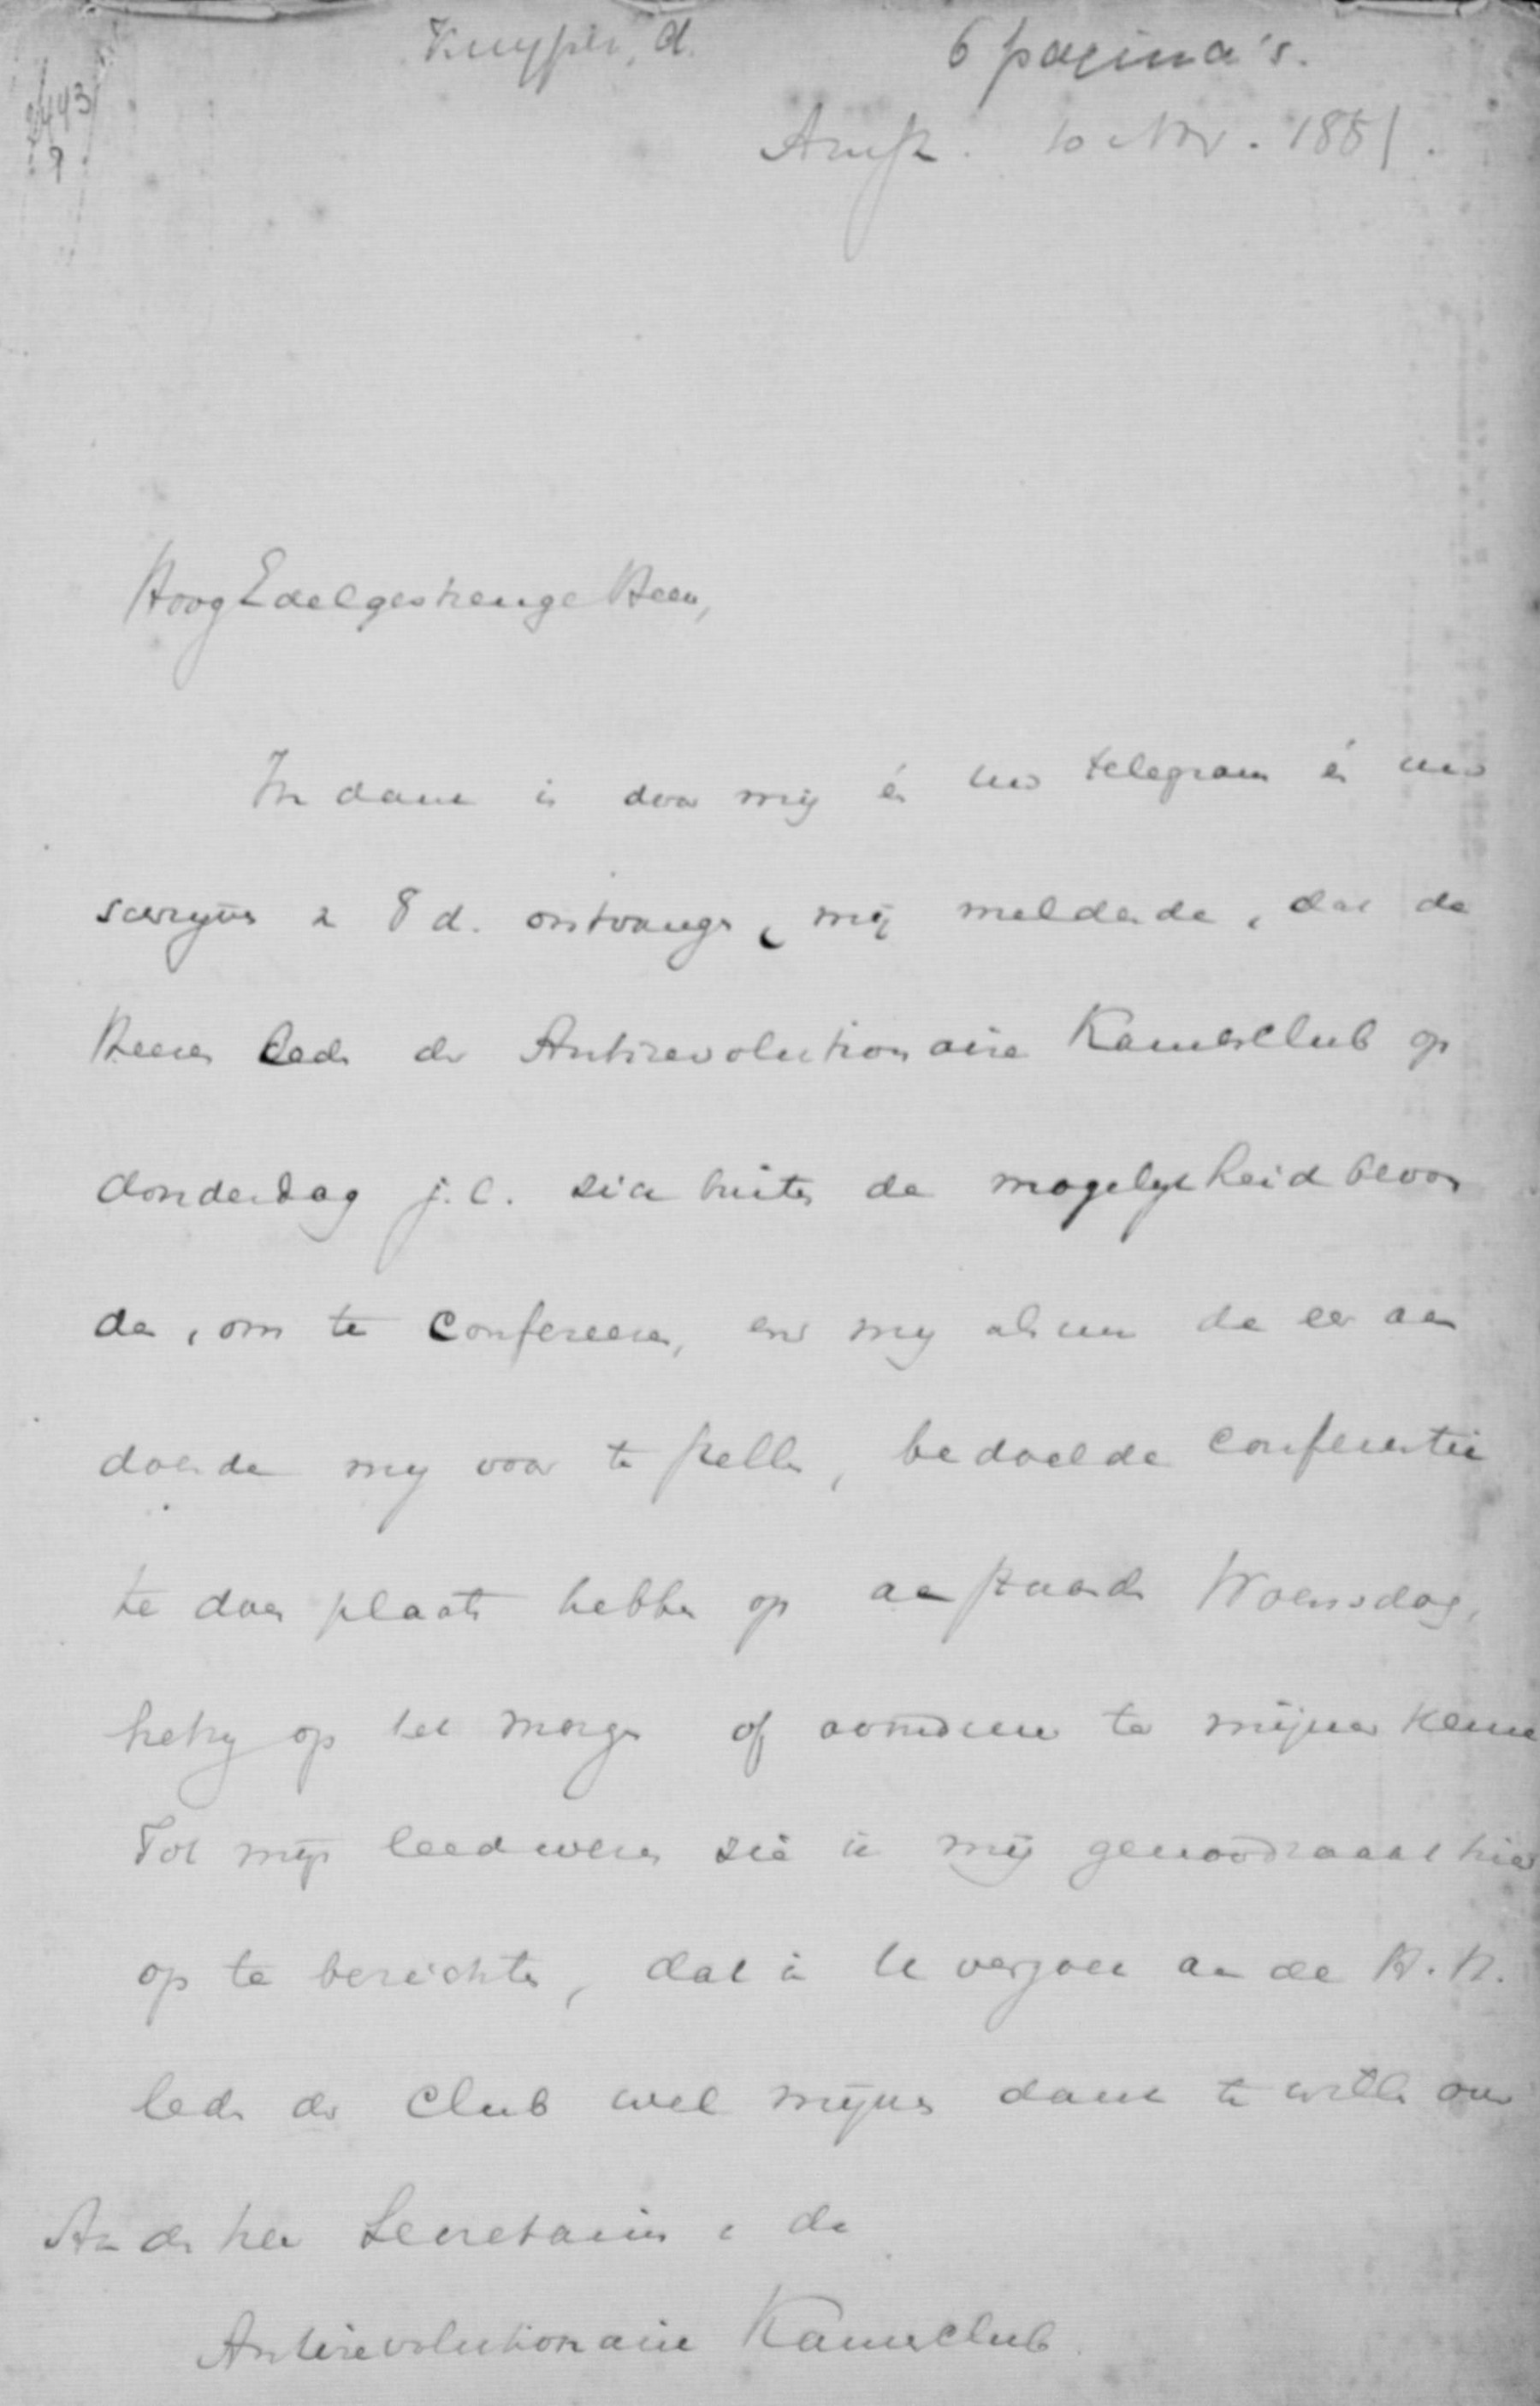 Kuyper, A.
6 pagina's.
2443
9
Amst. 10 Nov. 1881.
HoogEdelgestrenge Heer,
In dank is door mij én uw telegram én uw
schrijven 8 d. ontvangen, mij meldende, dat de
Heeren Leden der Antirevolutionaire Kamerclub op
donderdag j.l. zich buiten de mogelijkheid bevon
den, om te confereeren, en mij alsnu de eer aan
doende mij voor te stellen, bedoelde conferentie
te doen plaats hebben op aanstaande Woensdag,
hetzij op den morgen of avonduur te mijner keuze
Tot mijn leedwezen zie ik mij genoodzaakt hier
op te berichten, dat ik U verzoek aan de H.H.
leden der Club wel mijnen dank te willen over
Aan den heer Secretaris der
Antirevolutionaire Kamerclub.